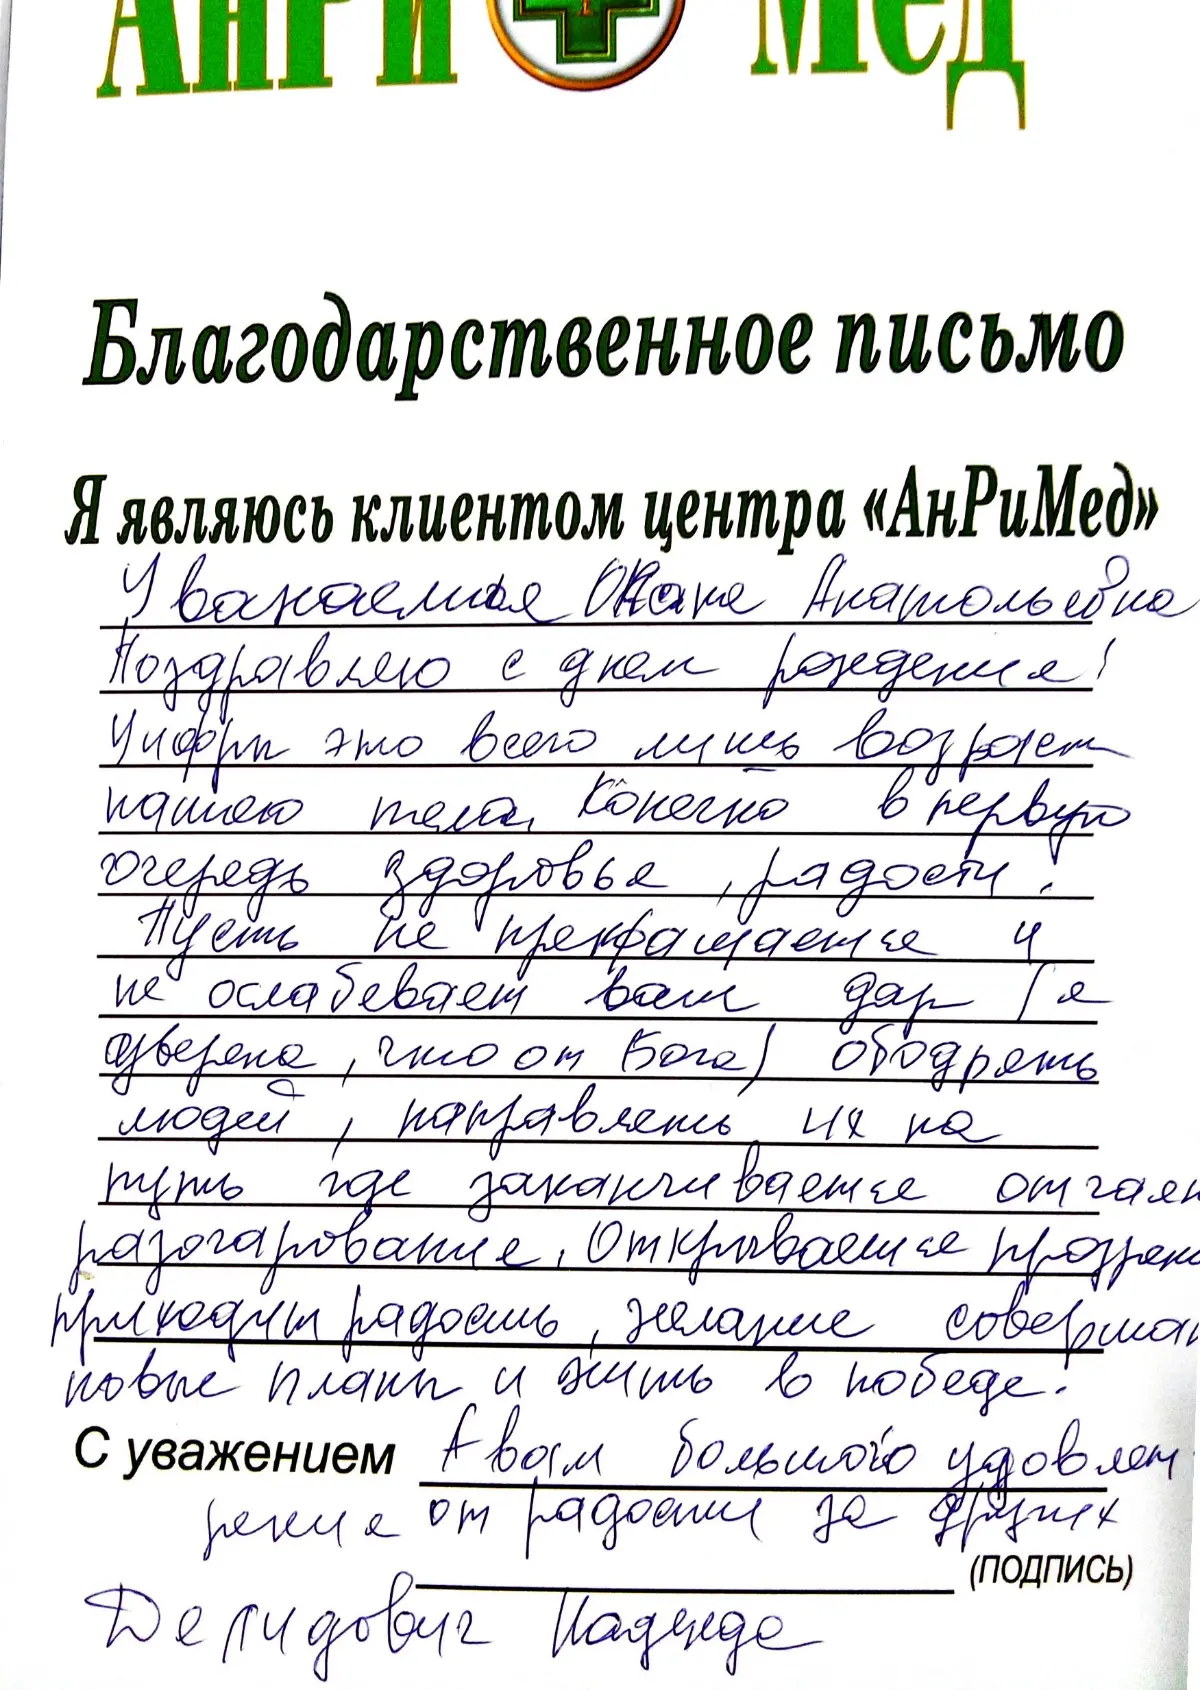 АнРи Мед
Благодарственное письмо
Я являюсь клиентом центра «АнРиМед»
Уважаемая Анатольевна
Поздравляю с днем рождения!
Цифры это всего лишь возраст
нашего тела. Конечно в первую
очередь здоровья, радости!
Пусть не прекращается и
не ослабевает ваш дар (я
уверена, что от Бога) ободрять
людей, направлять их на
путь где заканчивается отчаян
разочарование, Открывается прозрени
приходит радость, желание соверша
новые планы и жить в победе.
С уважением А вам большого удовлет
рения от радости за других
(подпись)
Делидович Надежда